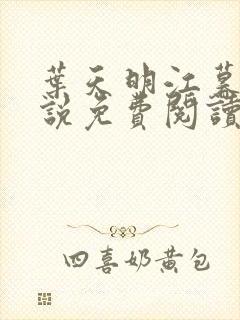 葉天明江暮
說免費閱讀
四喜奶黃包